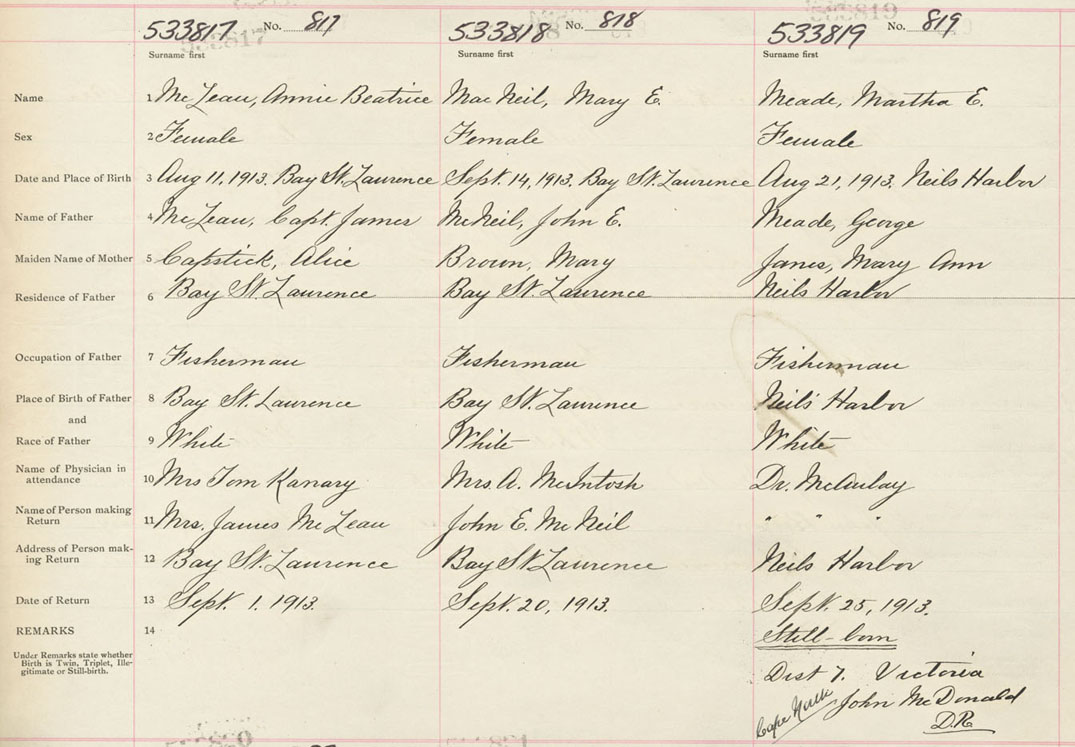 533817 No. 817 533818 No. 818 533819 No. 819
Surname first Surname first Surname first
Name 1 McLean, Annie Beatrice MacNeil, Mary E. Meade, Martha E.
Sex 2 Female Female Female
Date and Place of Birth 3 Aug 11, 1913. Bay St. Laurence Sept. 14, 1913. Bay St. Laurence Aug 21, 1913. Neils Harbor
Name of Father 4 McLean, Capt. James McNeil, John E. Meade, George
Maiden Name of Mother 5 Capstick, Alice Brown, Mary Janes, Mary Ann
Residence of Father 6 Bay St. Laurence Bay St. Lawrence Neils Harbor
Occupation of Father 7 Fisherman Fisherman Fisherman
Place of Birth of Father 8 Bay St. Laurence Bay St. Laurence Neils Harbor
and
Race of Father 9 White White White
Name of Physician in
attendance 10 Mrs Tom Kanary Mrs. A. McIntosh Dr. McAulay
Name of Person making
Return 11 Mrs. James McLean John E. McNeil " " "
Address of Person mak-
ing Return 12 Bay St. Laurence Bay St Laurence Neils Harbor
Date of Return 13 Sept. 1. 1913. Sept. 20, 1913. Sept. 25, 1913.
REMARKS 14 Still-born
Under Remarks state whether
Birth is Twin, Triplet, Ille-
gitimate or Still-birth.
Dist 7. Victoria
Cape North John McDonald
D.R.